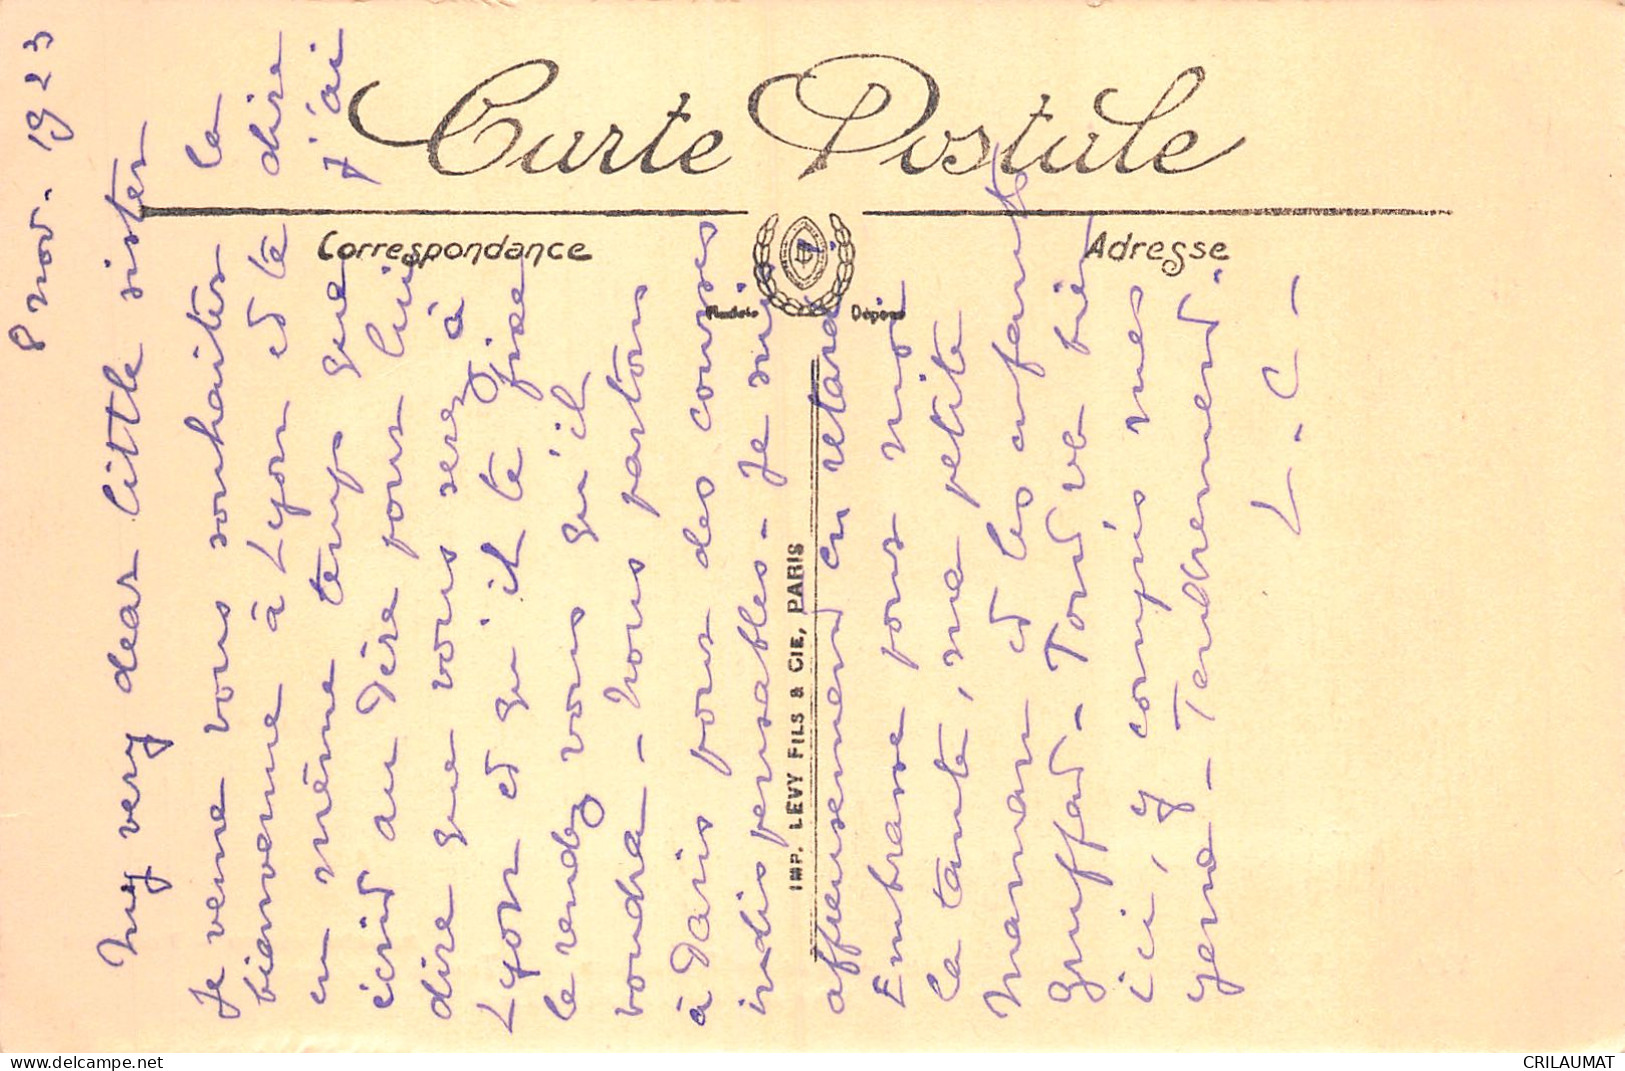 Carte Postale
Correspondance
Adresse
Modèle Déposé
IMP. LEVY FILS & CIE, PARIS
8 nov. 1923
My very dear little sister
Je veux vous souhaiter la
bienvenue à Lyon et te dire
en même temps que j'ai
écrit au Père pour lui
dire que vous serez à
Lyon et qu'il te fixe
le rendez vous qu'il
voudra - nous partons
à Paris pour des courses
indispensables - Je suis
affreusement en retard.
Embrasse pour moi
la tante, ma petite
maman et les enfants
- Tout va bien
ici, y compris mes
yeux - Tendrement.
L - C -
delcampe.net
CRILAUMAT